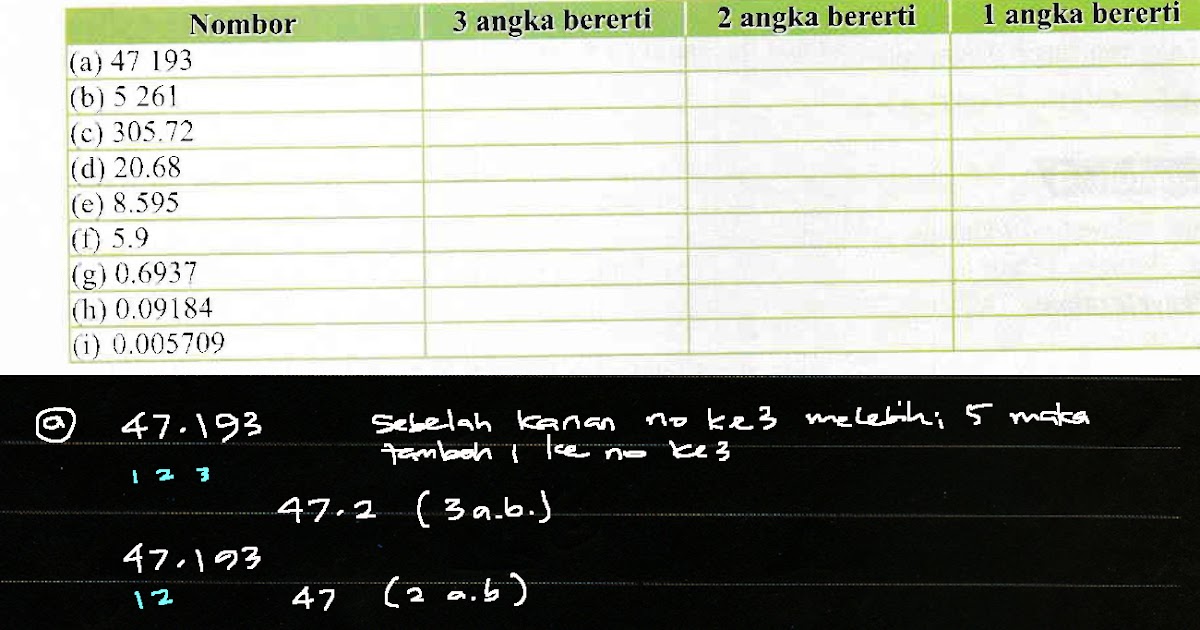 Nombor 3 angka bererti 2 angka bererti 1 angka bererti
(a) 47 193
(b) 5 261
(c) 305.72
(d) 20.68
(e) 8.595
(f) 5.9
(g) 0.6937
(h) 0.09184
(i) 0.005709
(a) 47.193 Sebelah kanan no ke3 melebihi 5 maka
tambah 1 ke no ke3
1 2 3
47.2 (3 a.b.)
47.193
1 2
47 (2 a.b)